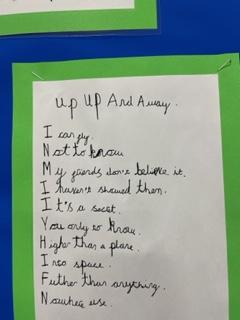 Up UP And Away.
I can fly.
Not to know
My friends don't believe it.
I haven't showed them.
It's a secret.
You only to know.
Higher than a plane.
Into space.
Futher than anything.
Nowhere use.